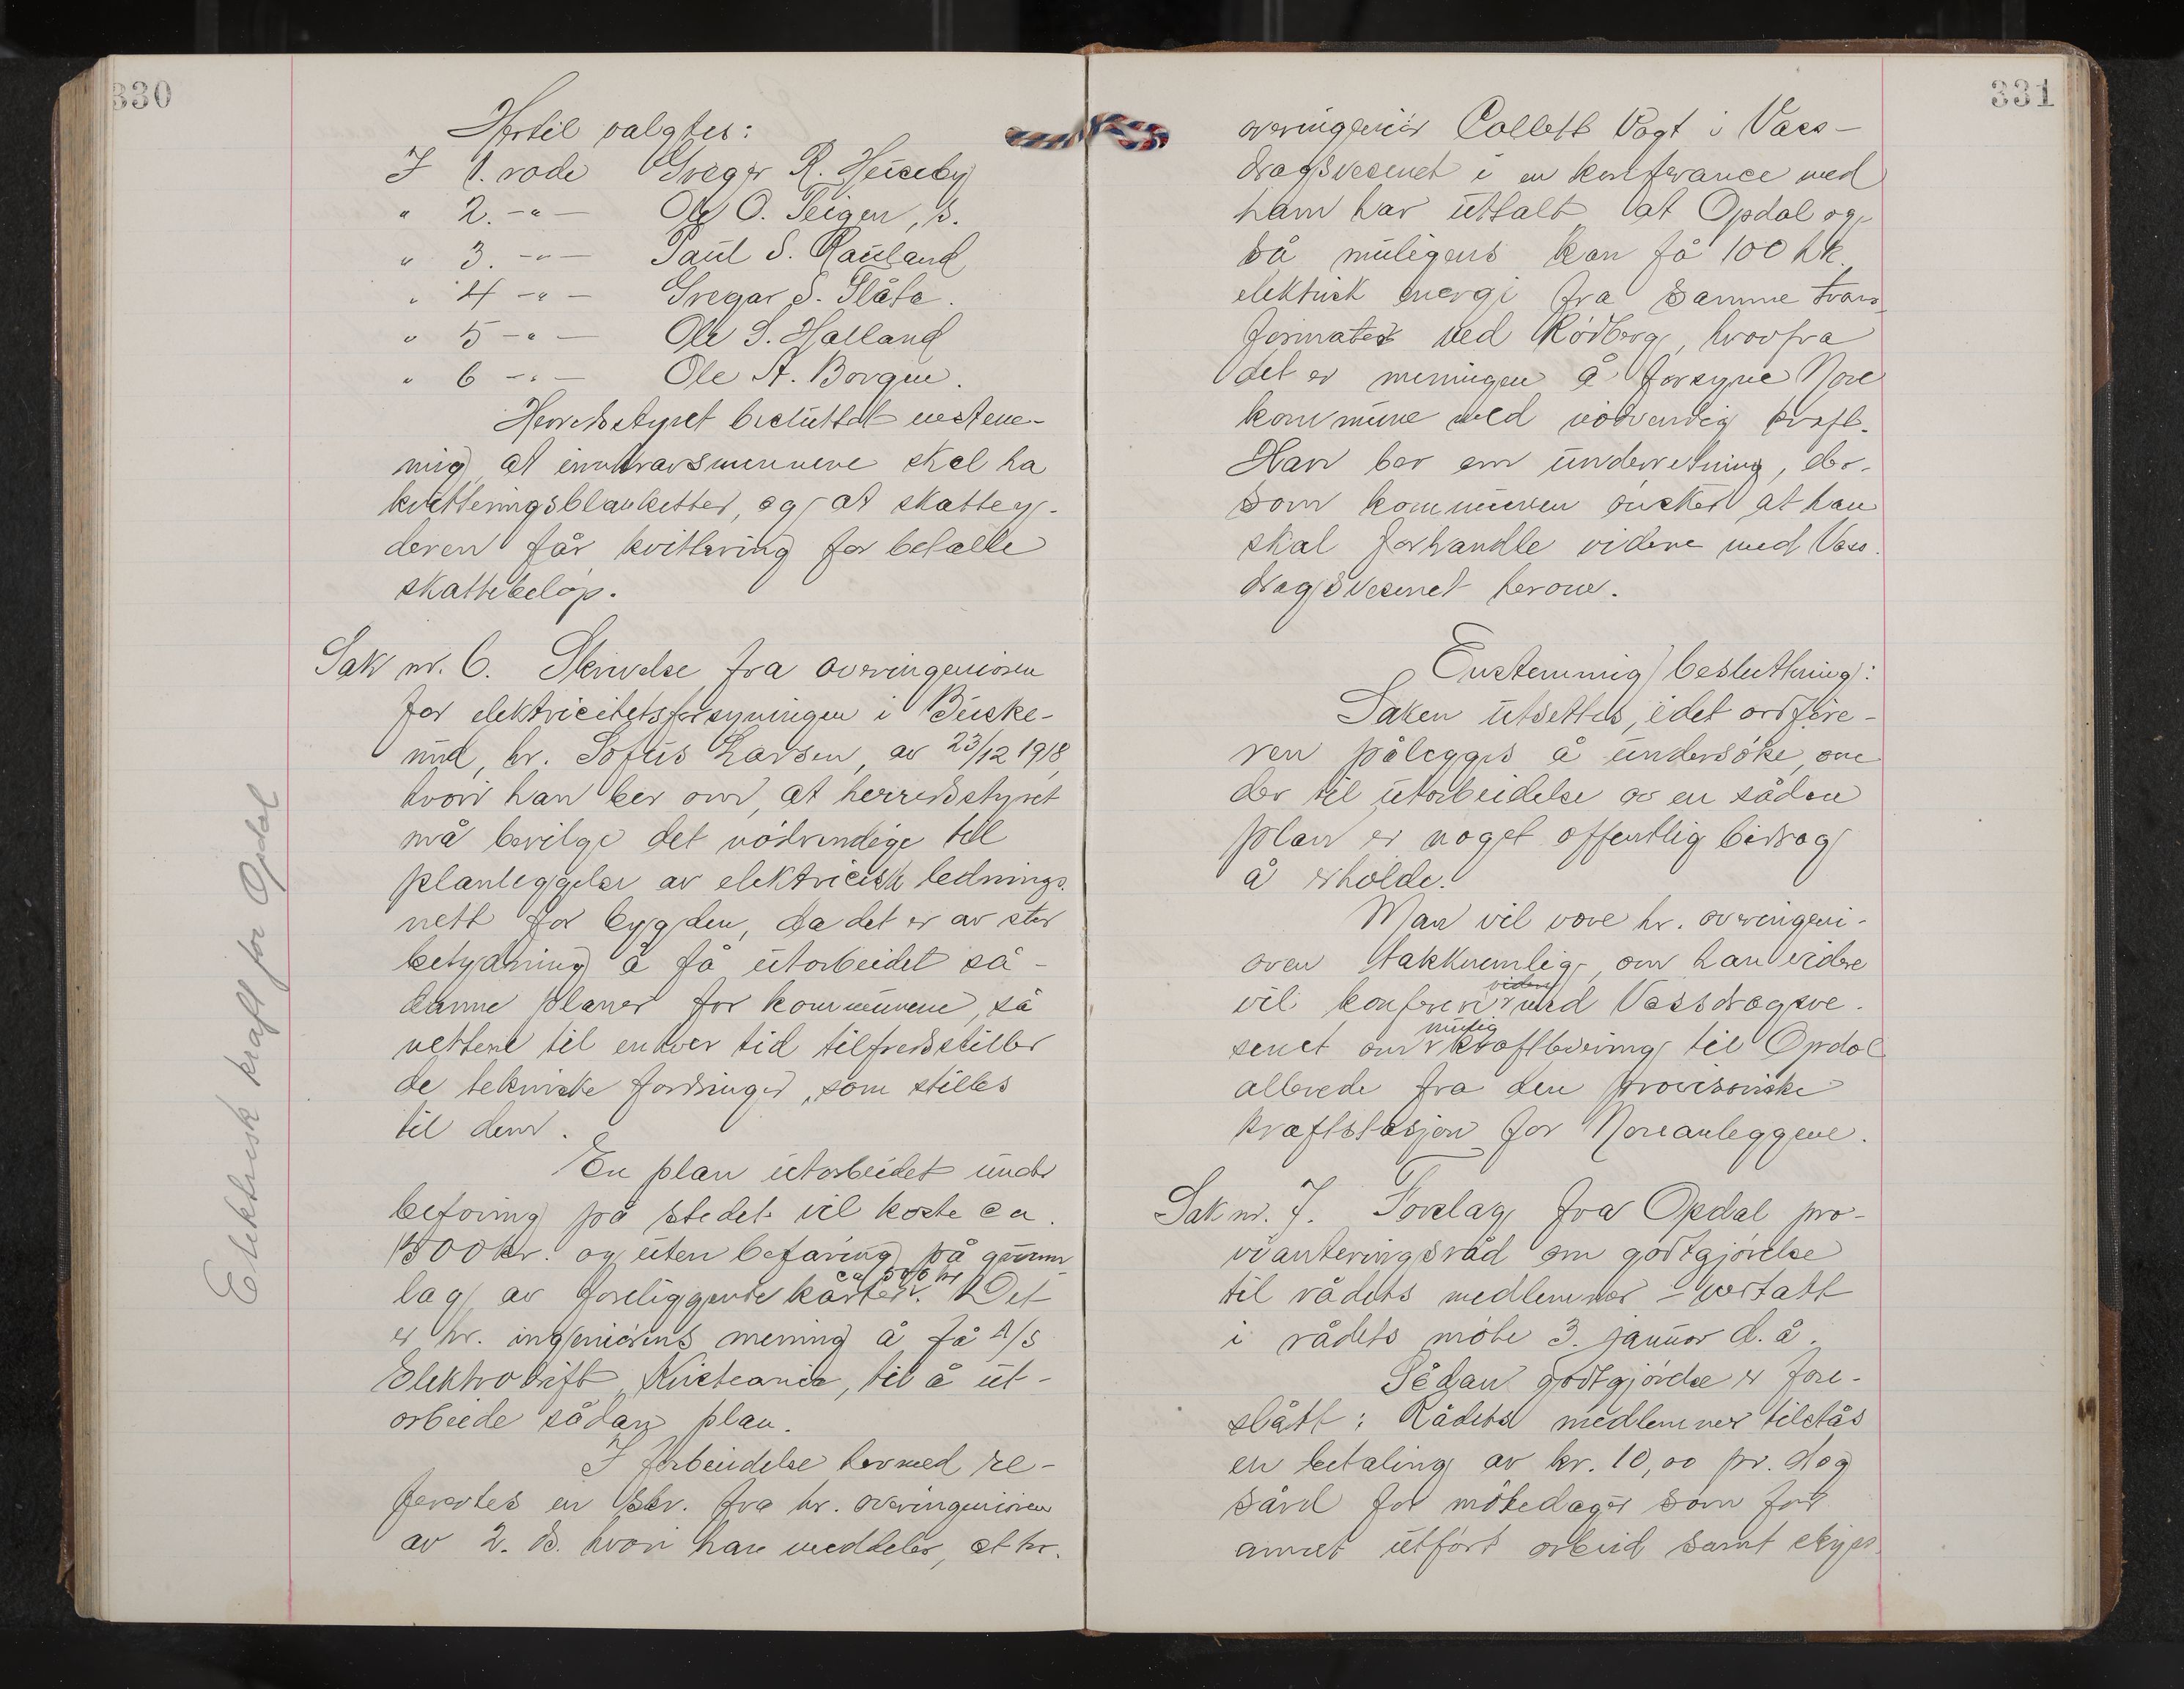 330
Hertil valgtes:
I 1. rode Gregar R. Huseby
" 2. -"- Ole O. Teigen, s.
" 3. -"- Paul S. Rauland
" 4 -"- Gregar S. Flåta.
" 5 -"- Ole S. Halland
" 6 -"- Ole A. Borgen.
Herredsstyret besluttet enstem-
mig, at innkrævsmennene skal ha
kvitteringsblanketter, og at skattey-
deren får kvittering for betalte
skattebeløp.
Sak nr. 6. Skrivelse fra overingeniøren
for elektricitetsforsyningen i Buske-
rud, hr. Sofus Larsen, av 23/12 1918,
hvori han ber om, at herredsstyret
må bevilge det nødvendige til
planleggelse av elektricisk lednings-
nett for bygden, da det er av stor
betydning å få utarbeidet så-
danne planer for kommunene, så
nettene til enhver tid tilfredsstiller
de tekniske fordringer, som stilles
til dem.
En plan utarbeidet under
befaring på stedet vil koste ca.
1500 kr. og uten befaring på grunn-
lag av foreliggende karter ca 500 kr. Det
er hr. ingeniørens mening å få A/S
Elektrodrift, Kristiania, til å ut-
arbeide sådan plan.
I forbindelse hermed re-
ferertes en skr. fra hr. overingeniøren
av 2. ds. hvori han meddeler, at hr.
Elektrisk kraft for Opdal
331
overingeniør Collett Vogt i Vass-
dragsvesenet i en konferance med
ham har uttalt at Opdal og-
så muligens kan få 100 hk.
elektrisk energi fra samme trans-
formator ved Rødberg, hvorfra
det er meningen å forsyne Nore
kommune med nødvendig kraft.
Han ber om underretning, der-
som kommunen ønsker at han
skal forhandle videre med Vass-
dragsvesenet herom.
Enstemmig beslutning:
Saken utsettes, idet ordføre-
ren pålegges å undersøke, om
der til utarbeidelse av en sådan
plan er noget offentlig bidrag
å erholde.
Man vil være hr. overingeni-
øren takknemlig, om han videre
vil konferere videre med Vassdragsve-
senet om mulig kraftlevering til Opdal
allerede fra den provisoriske
kraftstasjon for Noreanleggene.
Sak nr. 7. Forslag fra Opdal pro-
vianteringsråd om godtgjørelse
til rådets medlemmer - vertatt
i rådets møte 3. januar d. å.
Sådan godtgjørelse er fore-
slått: Rådets medlemmer tilståes
en betaling av kr. 10,00 pr. dag
såvel for møtedager som for
annet utført arbeid samt skyss-